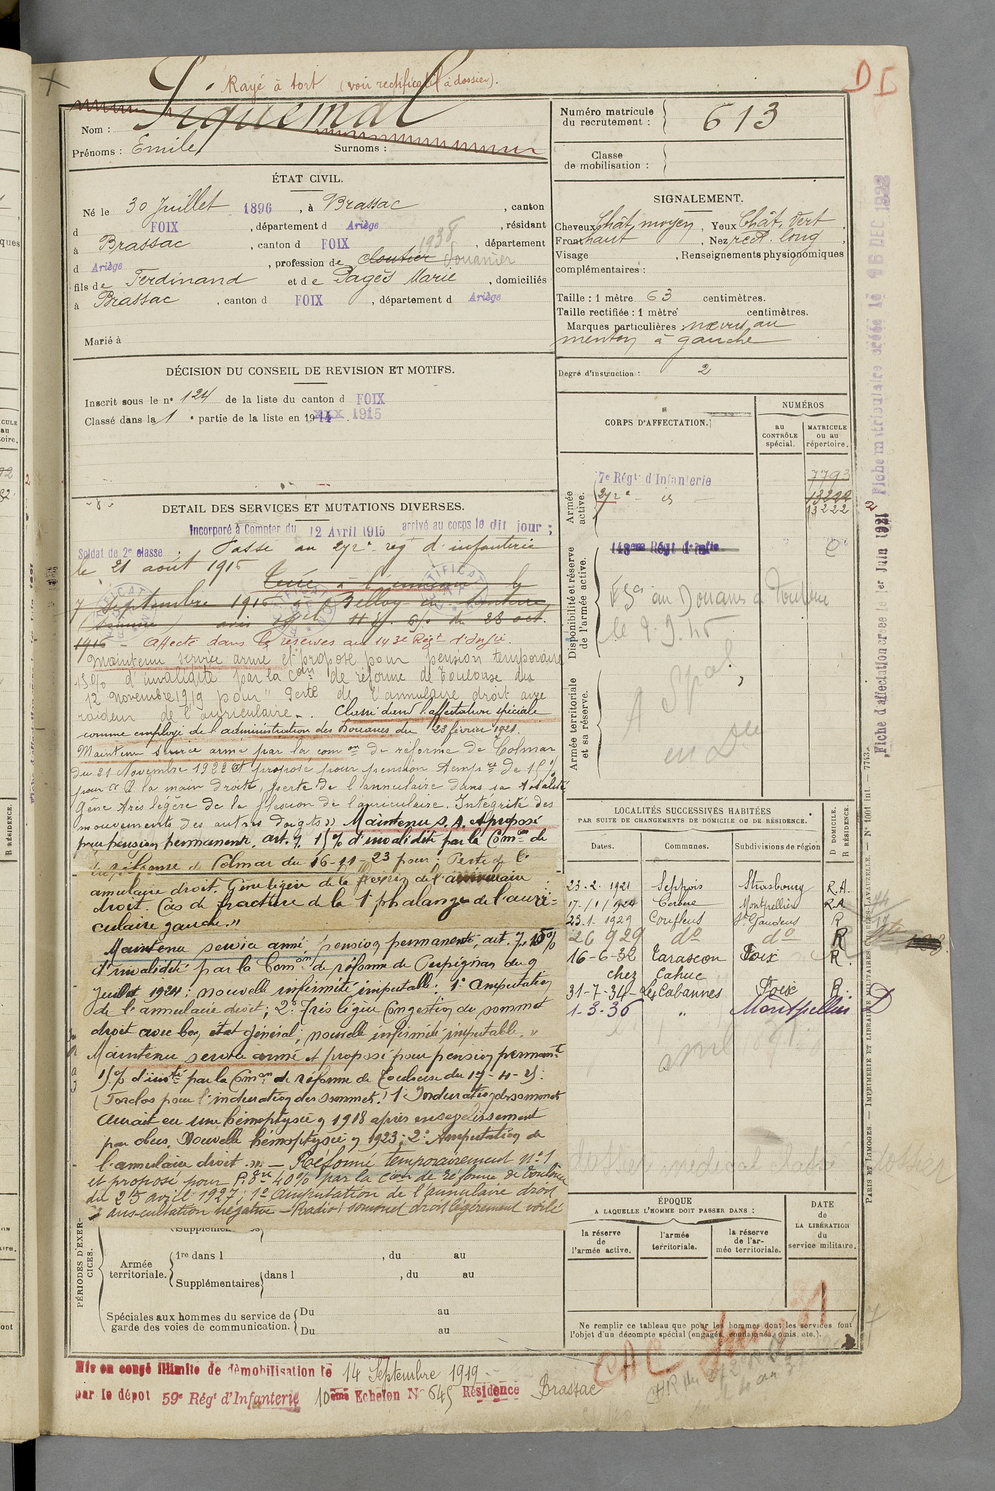 Rayé à tort (voir rectificatif à dossier).
D I
Nom : Piquemal
Prénoms : Emile
Surnoms :
Numéro matricule
du recrutement : 613
Classe
de mobilisation :
ÉTAT CIVIL.
Né le 30 Juillet 1896, à Brassac, canton
d FOIX, département d Ariège, résidant
à Brassac, canton d FOIX, département
1938
d Ariège, profession de cloutier Douanier
fils de Ferdinand et de Pagès Marie, domiciliés
à Brassac, canton d FOIX, département d Ariège
Marié à
SIGNALEMENT.
Cheveux chât. moyen, Yeux Chât. vert,
Front haut, Nez rect. long,
Visage , Renseignements physionomiques
complémentaires :
Taille : 1 mètre 63 centimètres.
Taille rectifiée : 1 mètre centimètres.
Marques particulières : nævus au
menton à gauche
Degré d'instruction : 2
DÉCISION DU CONSEIL DE REVISION ET MOTIFS.
Inscrit sous le n° 124 de la liste du canton d FOIX
Classé dans la 1e partie de la liste en 1915
DÉTAIL DES SERVICES ET MUTATIONS DIVERSES.
Incorporé à Compter du 12 Avril 1915 arrivé au corps le dit jour ;
Soldat de 2e classe Passé au 272e rég. d'infanterie
le 21 août 1916
Tué à l'ennemi le
7 Septembre 1916 à Belloy en Santerre
1916 - Affecté dans les réserves au 143e Régt d'Infie.
Maintenu service armé et proposé pour pension temporaire
15% d'invalidité par la Con de réforme de Toulouse du
12 novembre 1919 pour " Perte de l'annulaire droit avec
raideur de l'auriculaire . Classé dans l'affectation spéciale
comme employé de l'administration des Douanes du 23 février 1921.
Maintenu service armé par la comon de réforme de Colmar
du 21 Novembre 1922 et proposé pour pension tempre de 15%
pour " A la main droite, perte de l'annulaire dans sa totalité
Gêne très légère de la flexion de l'auriculaire. Intégrité des
mouvements des autres doigts " Maintenu S.A. et proposé
pour pension permanente, art. 7, 15% d'invalidité par la Comon de
réforme de Colmar du 16-11-23 pour : Perte de l'
annulaire droit. Gêne légère de la flexion de l'auriculaire
droit. Cas de fracture de la 1e phalange de l'auri-
culaire gauche."
Maintenu service armé, pension permanente, art. 7, 15%
d'invalidité par la Comon de réforme de Perpignan du 9
Juillet 1924 : nouvelle infirmité imputable. 1° Amputation
de l'annulaire droit ; 2° Très légère congestion du sommet
droit avec bon état général, nouvelle infirmité imputable."
Maintenu service armé et proposé pour pension permante
15% d'invté par la Comon de réforme de Toulouse du 17-4-25 :
(Forclos pour l'induration des sommets) 1° Induration des sommets
Aurait eu une hémoptysie en 1918 après ensevelissement
par obus. Nouvelle hémoptysie en 1923 ; 2° Amputation de
l'annulaire droit." - Réformé temporairement N°1
et proposé pour P 40% par la Con de réforme de Toulouse
du 25 avril 1927 ; 1° amputation de l'annulaire droit
2° auscultation négative - Radio : sommet droit légèrement voilé
CORPS D'AFFECTATION.
NUMÉROS
AU CONTRÔLE SPÉCIAL.
MATRICULE OU AU RÉPERTOIRE.
Armée active.
7e Régt d'Infanterie 7793
272e - d° 13222
13222
Disponibilité et réserve de l'armée active.
143eme Régt d'Infie
au Douanes à Toulouse
Armée territoriale et sa réserve.
LOCALITÉS SUCCESSIVES HABITÉES
PAR SUITE DE CHANGEMENTS DE DOMICILE OU DE RÉSIDENCE.
Dates. Communes. Subdivisions de région D DOMICILE. R RÉSIDENCE.
23-2-1921 Seppois Strasbourg R.A.
17-1-1924 Cerbère Montpellier RA
23-1-1929 Courfleus St Gaudens R
26 9 29 d° d° R
16-6-32 Tarascon Foix R.
chez Cahuc
31-7-34 Les Cabannes Foix R.
1.3.36 " Montpellier D
avril
ÉPOQUE
A LAQUELLE L'HOMME DOIT PASSER DANS :
la réserve de l'armée active.
l'armée territoriale.
la réserve de l'armée territoriale.
DATE DE LA LIBÉRATION du service militaire.
Ne remplir ce tableau que pour les hommes dont les services font
l'objet d'un décompte spécial (engagés, condamnés, omis, etc.).
PÉRIODES D'EXERCICES.
Supplémen
Armée territoriale.
1re dans l , du au
Supplémentaires dans l , du au
Spéciales aux hommes du service de
garde des voies de communication.
Du au
Du au
Mis en congé illimité de démobilisation le 14 Septembre 1919
par le dépôt 59e Rég' d'Infanterie 10ème Echelon N° 645 Résidence Brassac
CAC
Fiche matriculaire créée le 16 DEC 1938
Fiche d'affectation créée le 1er Juin 1921
PARIS ET LIMOGES. — IMPRIMERIE ET LIBRAIRIE MILITAIRES CHARLES-LAVAUZELLE.